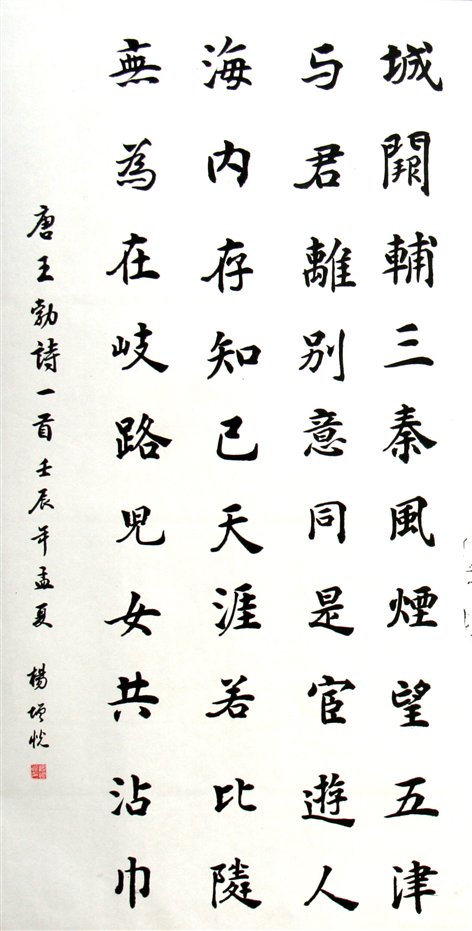 城闕輔三秦風煙望五津
与君離别意同是宦遊人
海内存知已天涯若比隣
無為在岐路兒女共沾巾
唐王勃詩一首壬辰年孟夏 楊增悦